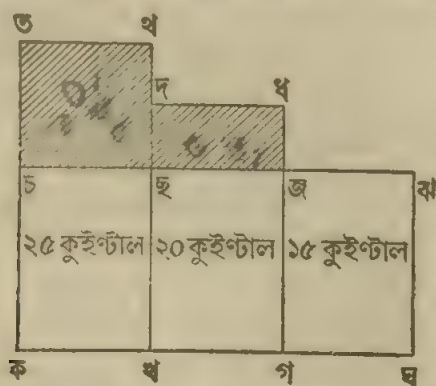 ত থ
দ ধ
চ ছ জ ঝ
২৫ কুইন্টাল ২০ কুইন্টাল ১৫ কুইন্টাল
ক খ গ ঘ